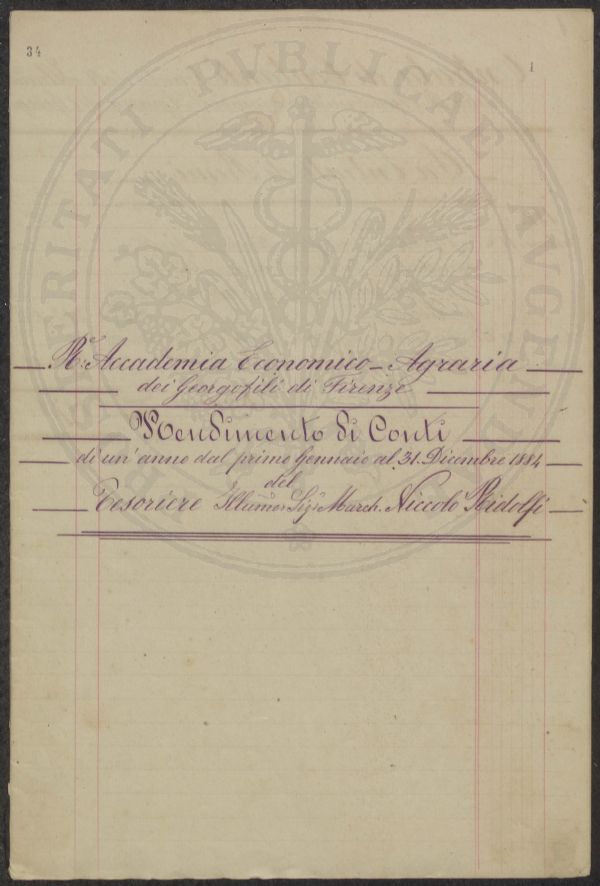 34
1
PROSPERITATI PVBLICAE AVGENDAE
R.ᵉ Accademia Economico-Agraria
dei Georgofili di Firenze
Rendimento di Conti
di un' anno dal primo Gennaio al 31. Dicembre 1884
del
Tesoriere Illumo. Sig.ʳ March. Niccolò Ridolfi